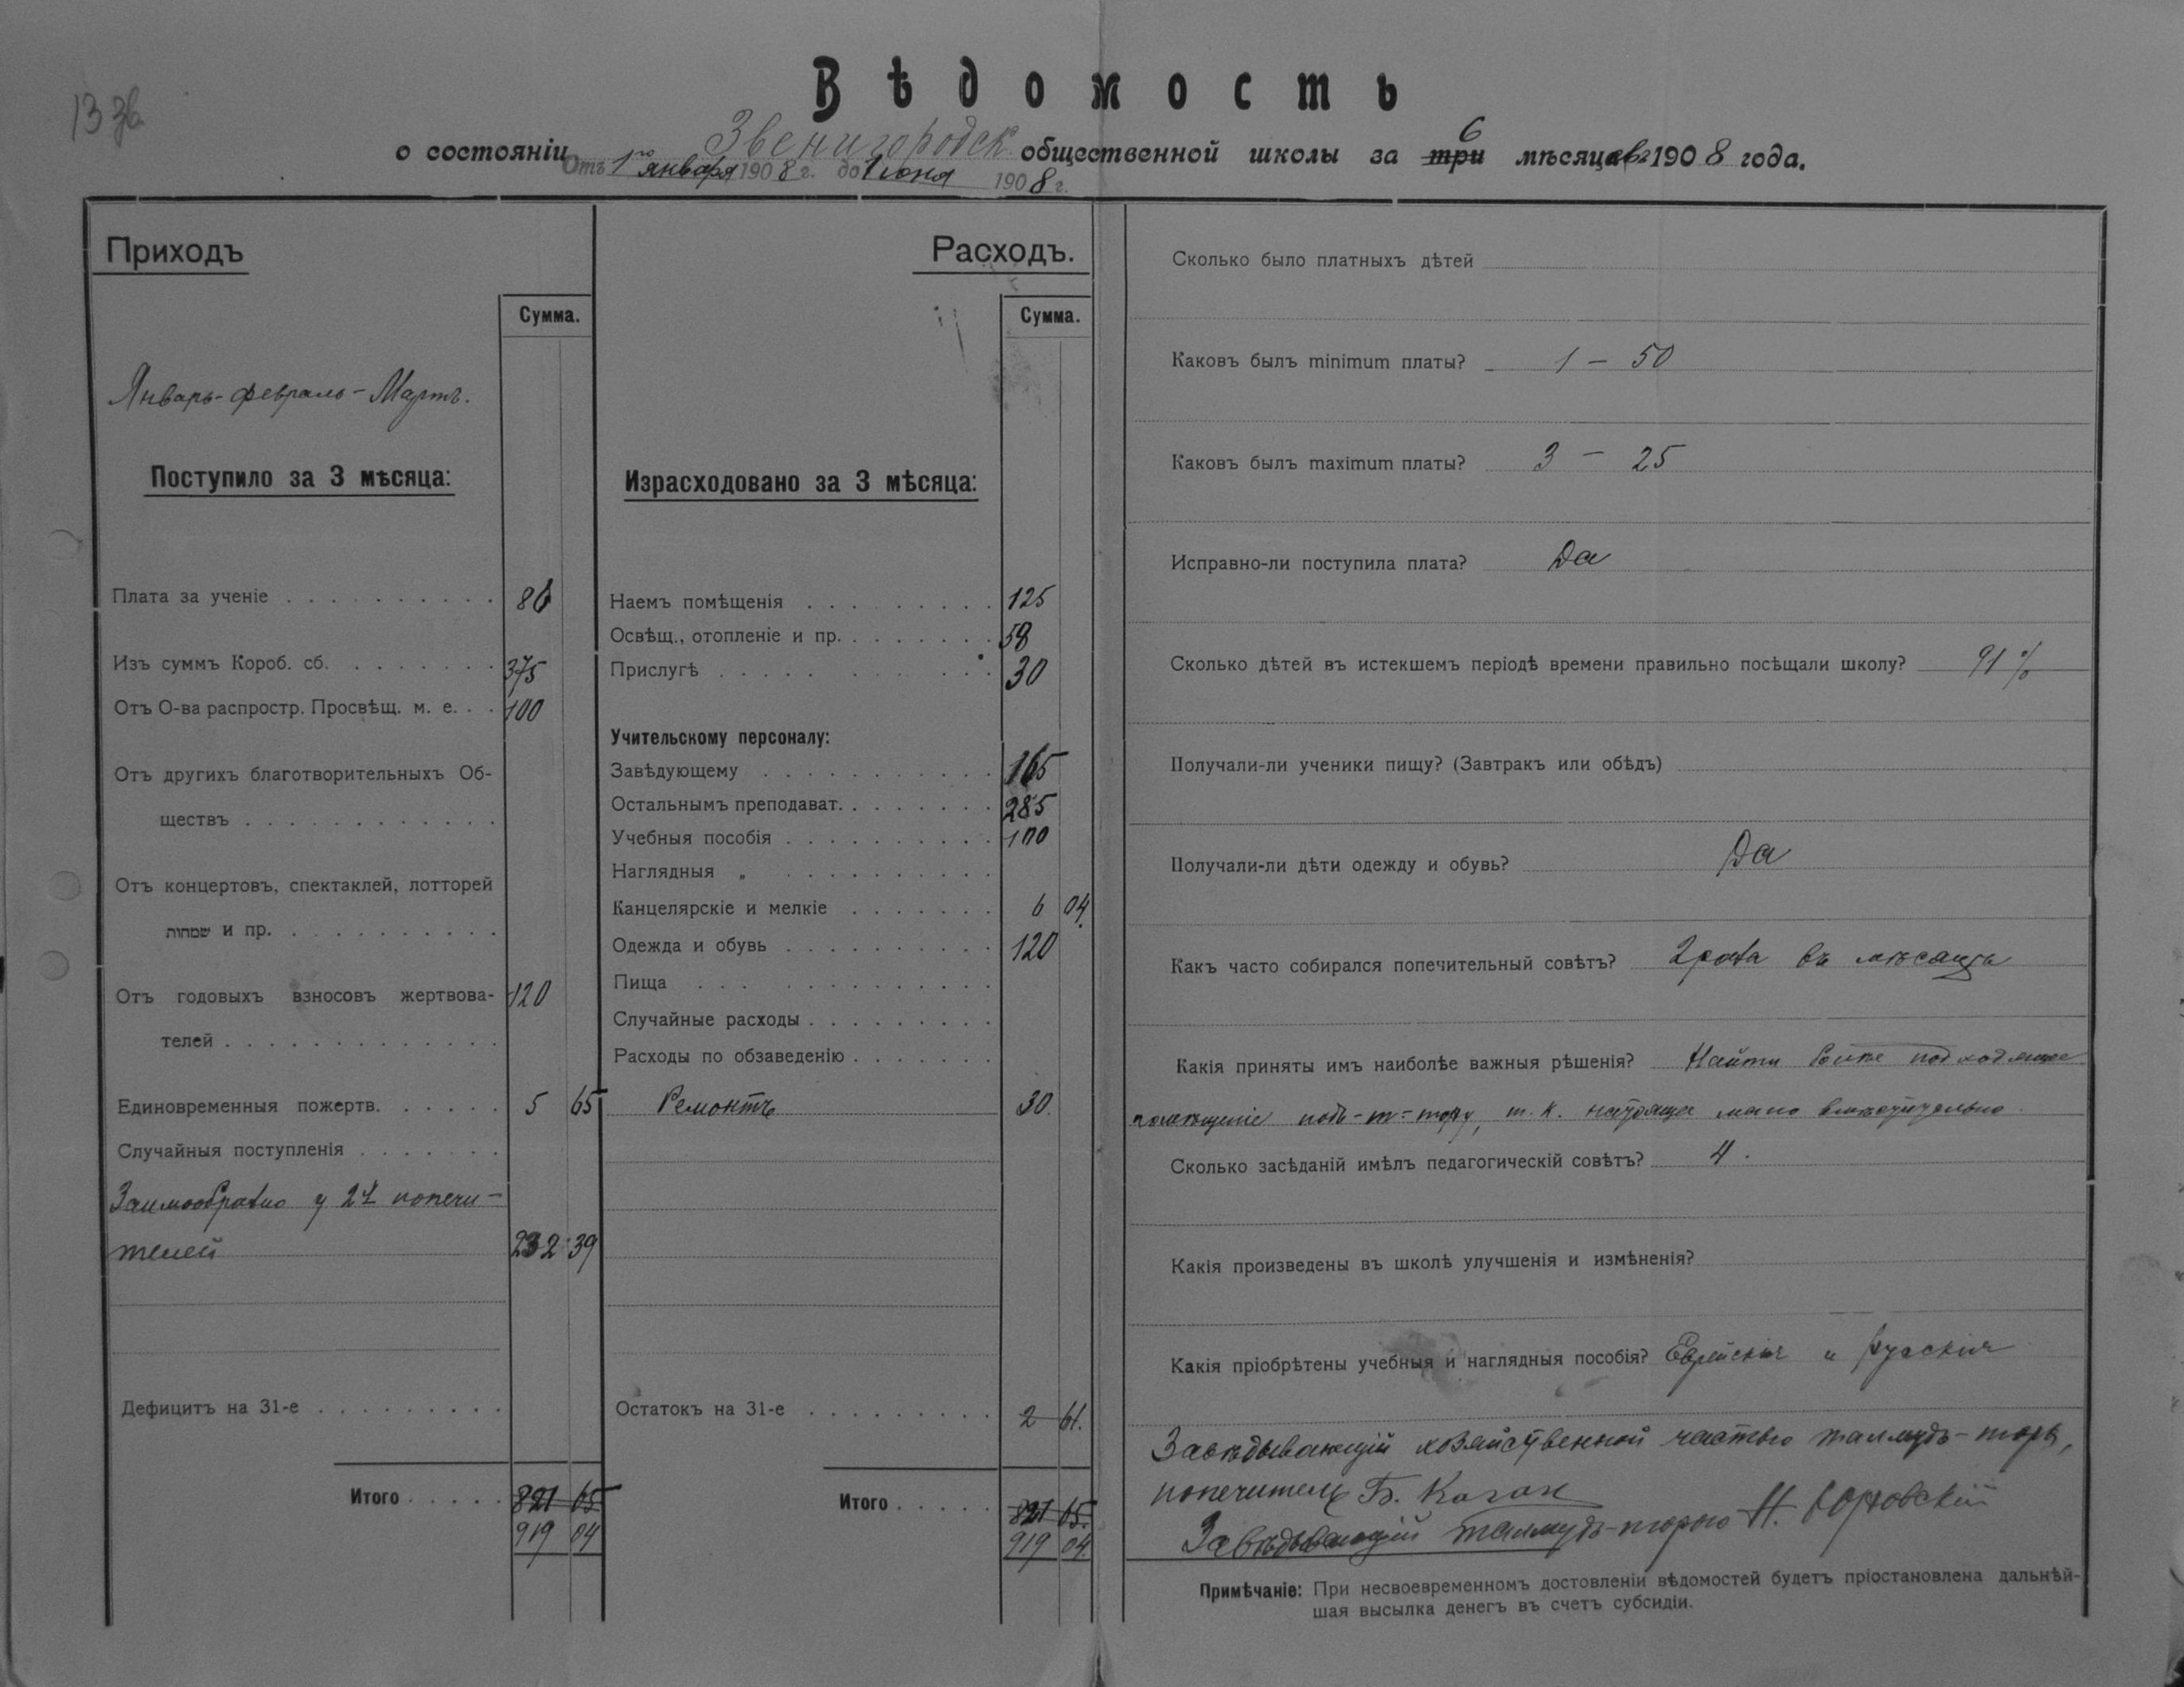 Вѣдомость
о состояніи Звенигородск. общественной школы за ~~три~~ 6 мѣсяцавъ 1908 года.
Отъ 1го января 1908 г. до 1 июня 1908 г.
Приходъ
Сумма.
Январь-февраль-Мартъ.
Поступило за 3 мѣсяца:
Плата за ученіе . . . . . . . . . . 86
Изъ суммъ Короб. сб. . . . . . . . 375
Отъ О-ва распростр. Просвѣщ. м. е. . . 100
Отъ другихъ благотворительныхъ Об-
ществъ . . . . . . . . . . . . .
Отъ концертовъ, спектаклей, лотторей
שמחות и пр. . . . . . . . . . .
Отъ годовыхъ взносовъ жертвова- 120
телей . . . . . . . . . . . . .
Единовременныя пожертв. . . . . . 5 65
Случайныя поступленія . . . . . . .
Заимообразно у 2х попечи-
телей 232 39
Дефицитъ на 31-е . . . . . . . . .
Итого . . . . . ~~821 65~~
919 04
Расходъ.
Сумма.
Израсходовано за 3 мѣсяца:
Наемъ помѣщенія . . . . . . . . . 125
Освѣщ., отопленіе и пр. . . . . . . . 58
Прислугѣ . . . . . . . . . . 30
Учительскому персоналу:
Завѣдующему . . . . . . . . . . . 165
Остальнымъ преподават. . . . . . . . 285
Учебныя пособія . . . . . . . . . . 100
Наглядныя „ . . . . . . . . . .
Канцелярскіе и мелкіе . . . . . . . 6 04.
Одежда и обувь . . . . . . . . . . 120
Пища . . . . . . . . . . . . . .
Случайные расходы . . . . . . . . .
Расходы по обзаведенію . . . . . . .
Ремонтъ 30.
Остатокъ на 31-е . . . . . . . . . ~~2 61.~~
Итого . . . . . ~~821 65.~~
919 04.
Сколько было платныхъ дѣтей
Каковъ былъ minimum платы? 1 – 50
Каковъ былъ maximum платы? 3 – 25
Исправно-ли поступила плата? Да
Сколько дѣтей въ истекшемъ періодѣ времени правильно посѣщали школу? 91 %
Получали-ли ученики пищу? (Завтракъ или обѣдъ)
Получали-ли дѣти одежду и обувь? Да
Какъ часто собирался попечительный совѣтъ? 2 раза въ мѣсяцъ
Какія приняты имъ наиболѣе важныя рѣшенія? Найти болѣе подходящее
помѣщеніе подъ т-тору, т. к. настоящее мало вместительно.
Сколько засѣданій имѣлъ педагогическій совѣтъ? 4.
Какія произведены въ школѣ улучшенія и измѣненія?
Какія пріобрѣтены учебныя и наглядныя пособія? Еврейскія и русскія
Завѣдывающій хозяйственной частью талмудъ-торы,
попечитель Б. Каган
Завѣдывающій талмудъ-торою Н.
Примѣчаніе: При несвоевременномъ достовленіи вѣдомостей будетъ пріостановлена дальнѣй-
шая высылка денегъ въ счетъ субсидіи.